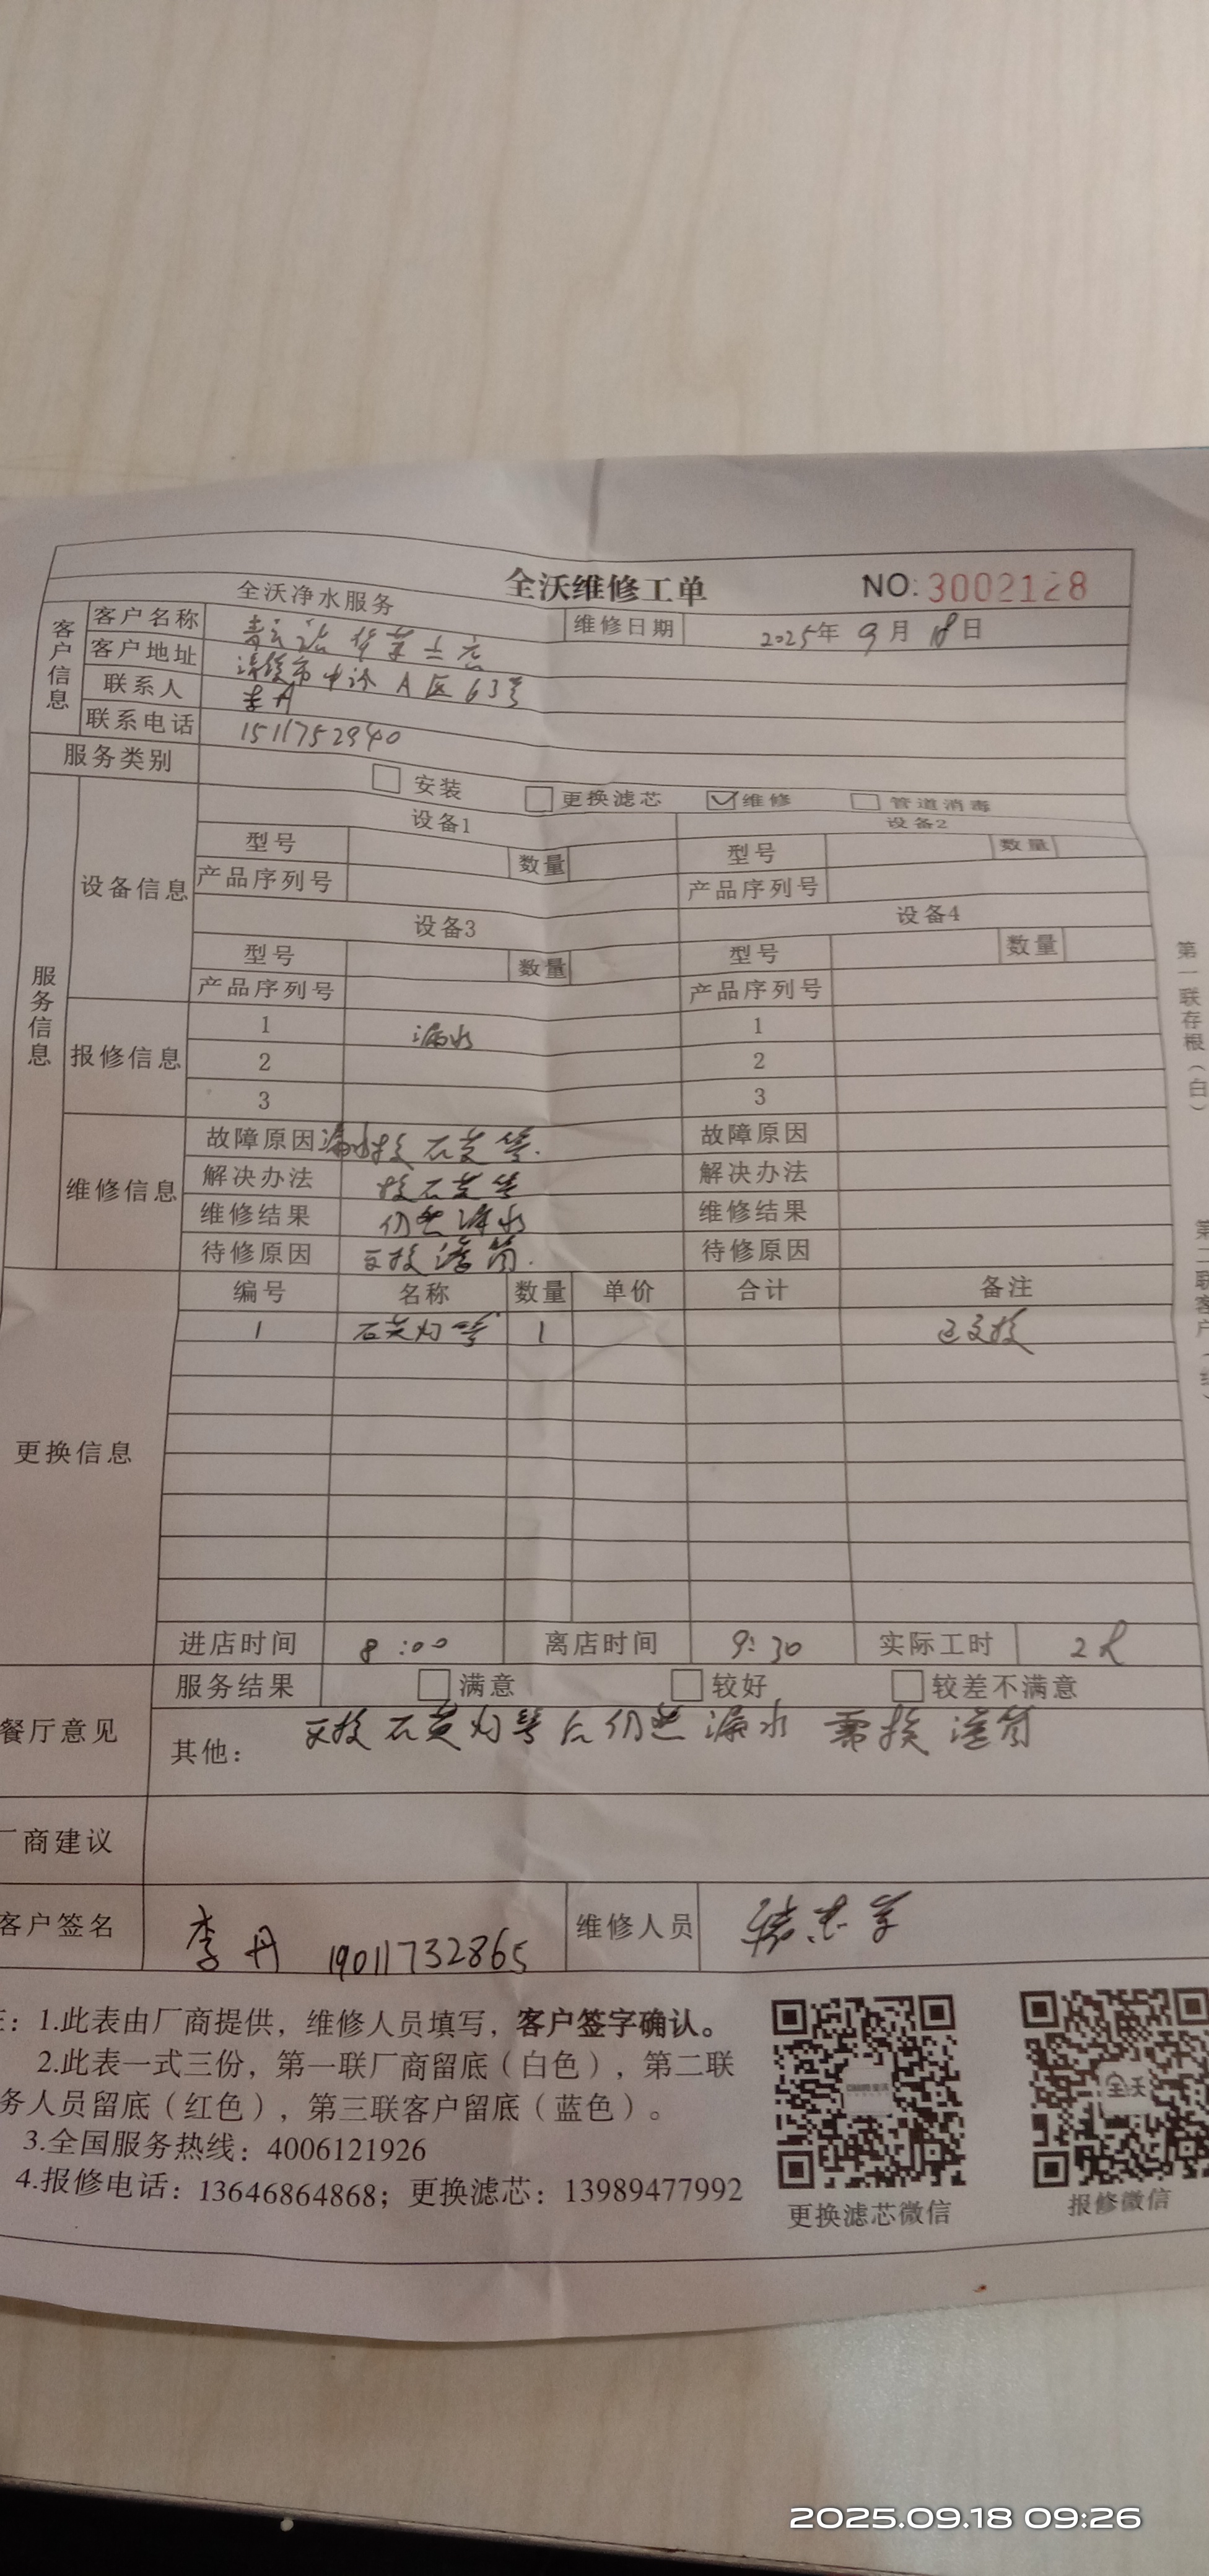 全沃净水服务 全沃维修工单 NO:3002128
客户信息
客户名称 维修日期 2025年 9月 18日
客户地址 A区63号
联系人 李丹
联系电话 1511752940
服务类别 安装 更换滤芯 维修 管道消毒
服务信息
设备信息
设备1 设备2
型号 数量 型号 数量
产品序列号 产品序列号
设备3 设备4
型号 数量 型号 数量
产品序列号 产品序列号
报修信息
1 漏水 1
2 2
3 3
维修信息
故障原因 漏水换石英管. 故障原因
解决办法 换石英管 解决办法
维修结果 仍然漏水 维修结果
待修原因 更换滤筒. 待修原因
更换信息
编号 名称 数量 单价 合计 备注
1 石英灯管 1 已更换
进店时间 8:00 离店时间 9:30 实际工时 2h
餐厅意见
服务结果 满意 较好 较差不满意
其他: 更换石英灯管后仍然漏水 需换滤筒
厂商建议
客户签名 李丹 19011732865 维修人员
1.此表由厂商提供，维修人员填写，客户签字确认。
2.此表一式三份，第一联厂商留底（白色），第二联
务人员留底（红色），第三联客户留底（蓝色）。
3.全国服务热线：4006121926
4.报修电话：13646864868；更换滤芯：13989477992
更换滤芯微信 报修微信
全沃
第一联存根（白）
第二联客户
2025.09.18 09:26